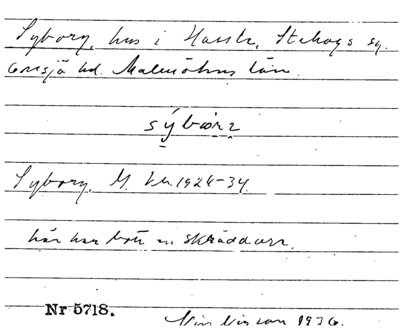 Syborg, hus i Hassle, Stehags sn.
Onsjö hd. Malmöhus län.
sýbœrɿ
Syborg, M. bl. 1926-34.
här har bott en skräddare.
Nr 5718.
1936.